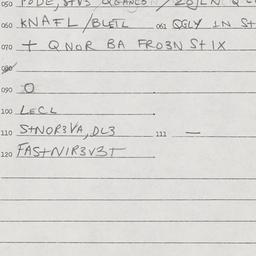 050 PODE, STV3 QGANES / ZOJLN Q
060 KNAFL / BLETL 061 QGLY IN St
070 + QNOR BA FRO3N St IX
080
090 O
100 LECL
110 StNOR3VA, DL3 111 —
120 FAStNIR3V3T